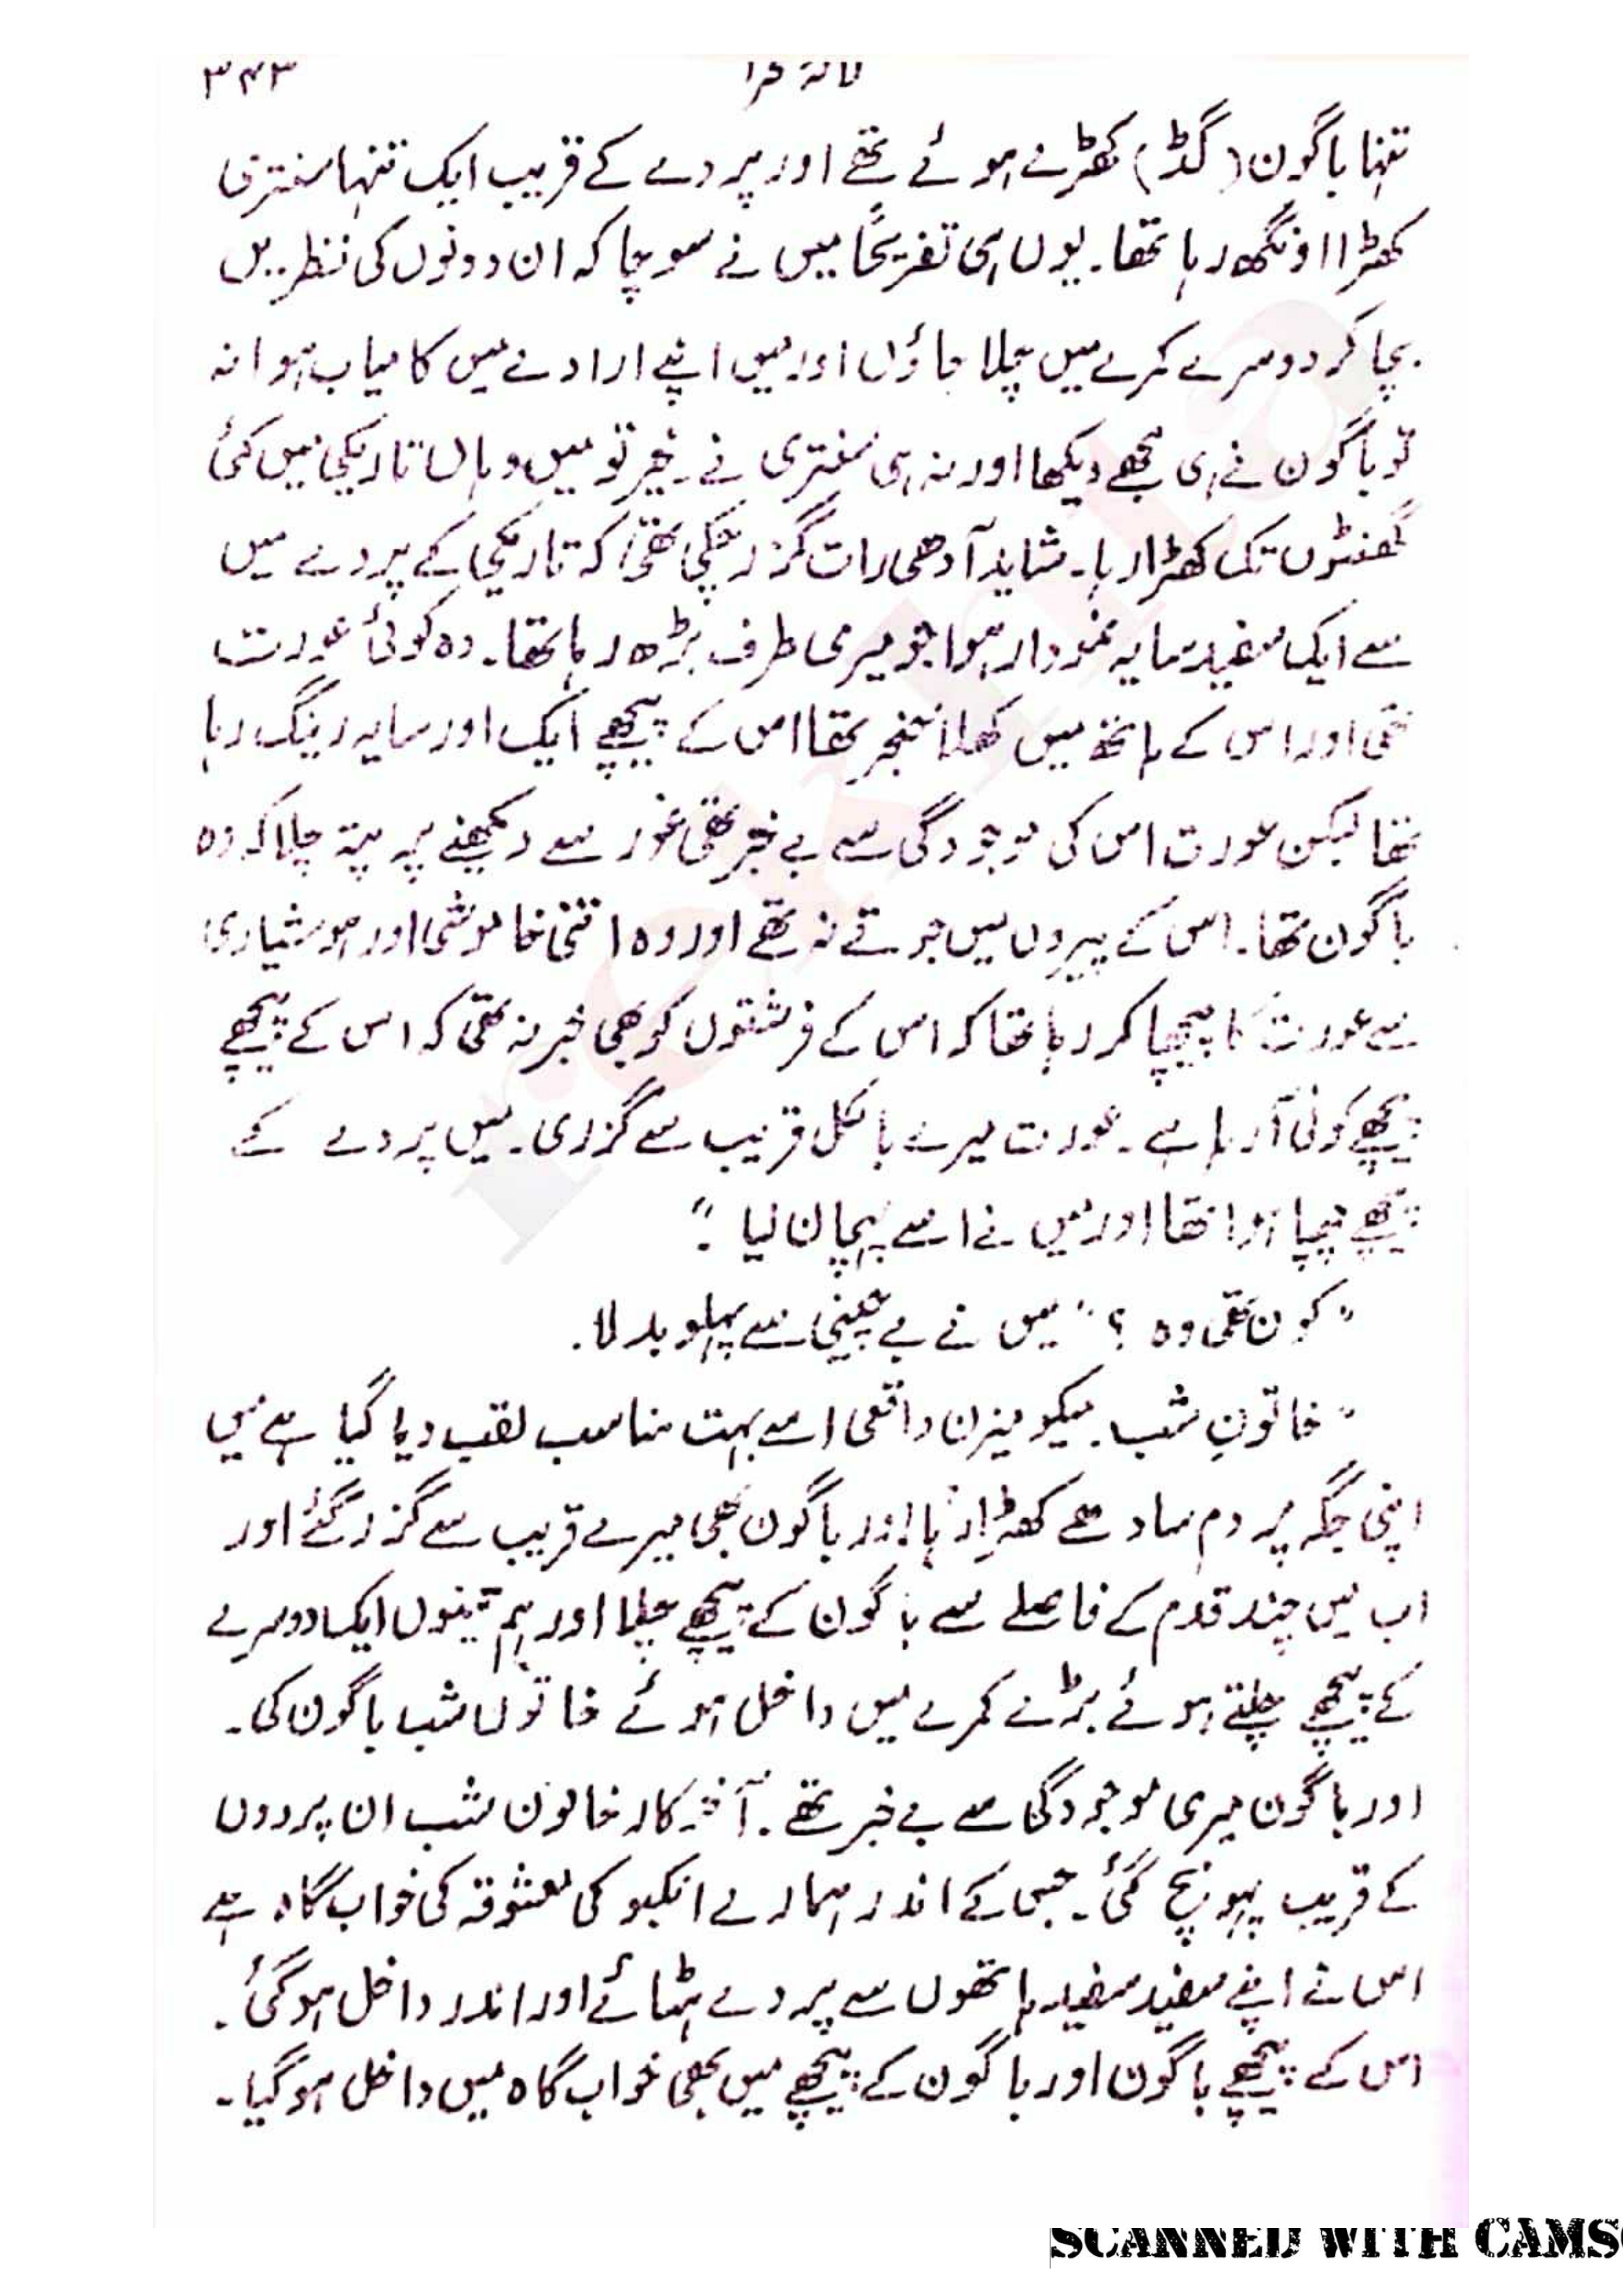 ۳۴۳
تنہا باگون (گڈ) کھڑے ہوئے تھے اور پردے کے قریب ایک تنہا سنتری
کھڑا اونگھ رہا تھا۔ یوں ہی تفریحاً میں نے سوچا کہ ان دونوں کی نظریں
بچا کر دوسرے کمرے میں چلا جاؤں اور میں اپنے ارادے میں کامیاب ہوا نہ
تو باگون نے ہی مجھے دیکھا اور نہ ہی سنتری نے۔ خیر تو میں وہاں تاریکی میں کئی
گھنٹوں تک کھڑا رہا۔ شاید آدھی رات گزر چکی تھی کہ تاریکی کے پردے میں
سے ایک سفید سایہ نمودار ہوا جو میری طرف بڑھ رہا تھا۔ وہ کوئی عورت
تھی اور اس کے ہاتھ میں کھلا خنجر تھا اس کے پیچھے ایک اور سایہ رینگ رہا
تھا لیکن عورت اس کی موجودگی سے بے خبر تھی غور سے دیکھنے پر پتہ چلا کہ وہ
باگون تھا۔ اس کے پیروں میں جوتے نہ تھے اور وہ اتنی خاموشی اور ہوشیاری
سے عورت کا پیچھا کر رہا تھا کہ اس کے فرشتوں کو بھی خبر نہ تھی کہ اس کے پیچھے
پیچھے کوئی آ رہا ہے۔ عورت میرے بالکل قریب سے گزری۔ میں پردے کے
پیچھے چھپا ہوا تھا اور میں نے اسے پہچان لیا۔"
"کون تھی وہ؟" میں نے بے چینی سے پہلو بدلا۔
"خاتونِ شب۔ میکومیزن واقعی اسے بہت مناسب لقب دیا گیا ہے میں
اپنی جگہ پر دم سادھے کھڑا رہا اور باگون بھی میرے قریب سے گزر گئے اور
اب میں چند قدم کے فاصلے سے باگون کے پیچھے چلا اور ہم تینوں ایک دوسرے
کے پیچھے چلتے ہوئے بڑے کمرے میں داخل ہوئے خاتون شب باگون کی۔
اور باگون میری موجودگی سے بے خبر تھے۔ آخر کار خاتون شب ان پردوں
کے قریب پہونچ گئی۔ جس کے اندر ہمارے انکبو کی معشوقہ کی خواب گاہ ہے
اس نے اپنے سفید سفید ہاتھوں سے پردے ہٹائے اور اندر داخل ہو گئی۔
اس کے پیچھے باگون اور باگون کے پیچھے میں بھی خواب گاہ میں داخل ہو گیا۔
SCANNED WITH CAMS